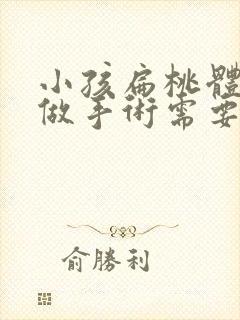 小孩扁桃體
做手術需要
俞勝利